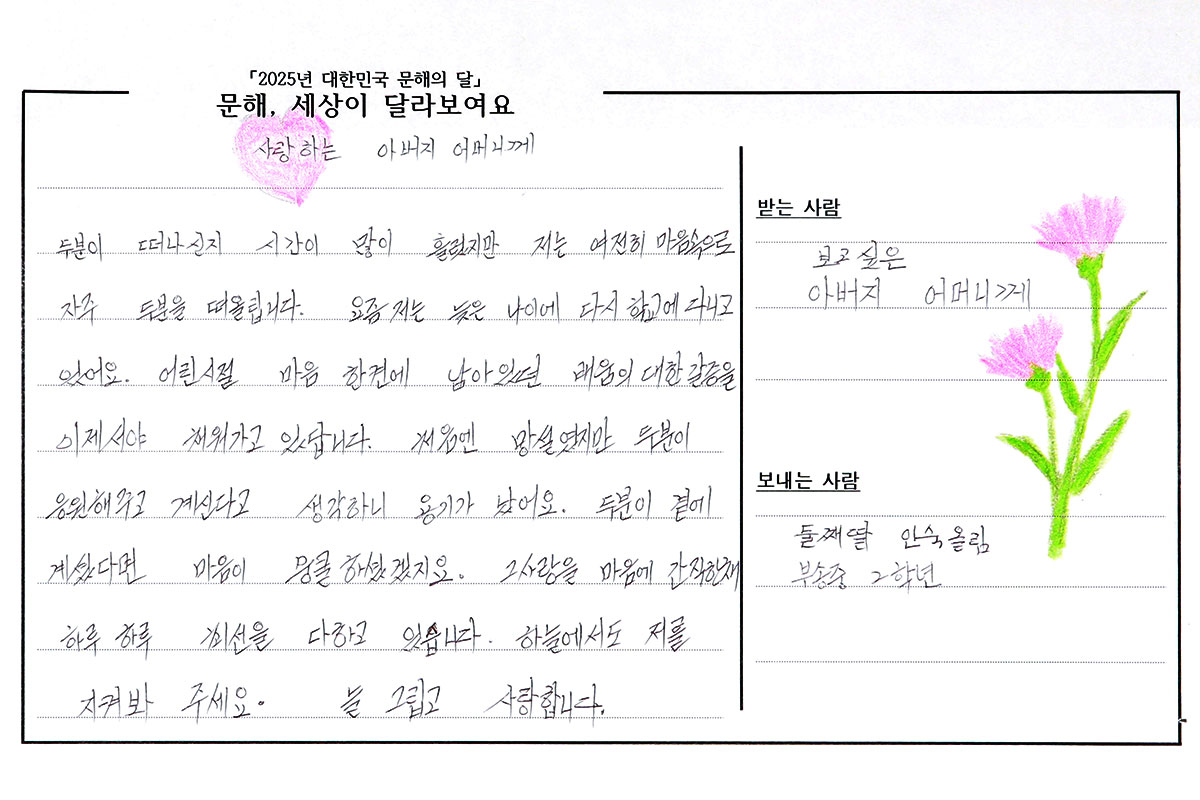 「2025년 대한민국 문해의 달」
문해, 세상이 달라보여요
사랑하는 아버지 어머니께
두분이 떠나신지 시간이 많이 흘렀지만 저는 여전히 마음속으로
자주 두분을 떠올립니다. 요즘 저는 늦은 나이에 다시 학교에 다니고
있어요. 어린시절 마음 한켠에 남아있던 배움의 대한 갈증을
이제서야 채워가고 있답니다. 처음엔 망설였지만 두분이
응원해주고 계신다고 생각하니 용기가 났어요. 두분이 곁에
계셨다면 마음이 뭉클하셨겠지요. 그사랑을 마음에 간직한채
하루 하루 최선을 다하고 있습니다. 하늘에서도 저를
지켜봐 주세요. 늘 그립고 사랑합니다.
받는 사람
보고 싶은
아버지 어머니께
보내는 사람
둘째딸 안숙올림
부송중 2학년